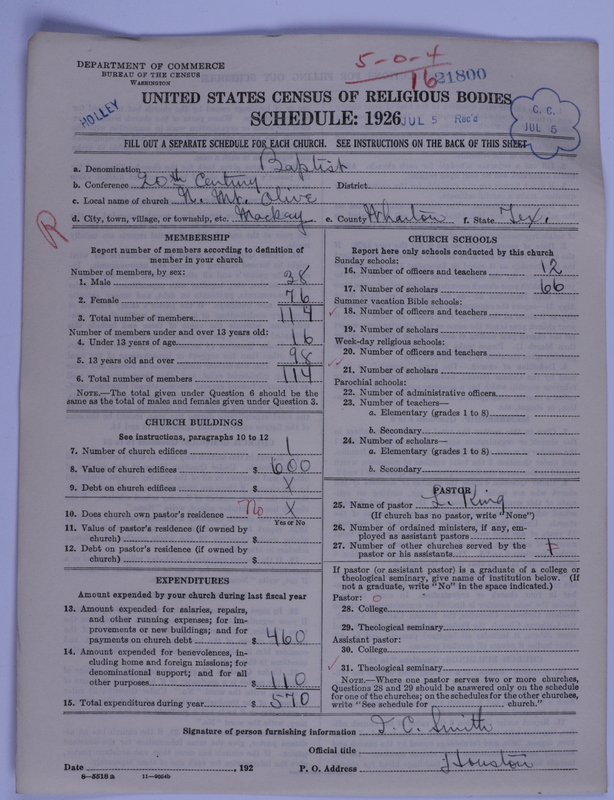 DEPARTMENT OF COMMERCE
BUREAU OF THE CENSUS
WASHINGTON
5-0-4
16
21800
HOLLEY
UNITED STATES CENSUS OF RELIGIOUS BODIES
SCHEDULE: 1926
JUL 5 Rec'd
C. C.
JUL 5
FILL OUT A SEPARATE SCHEDULE FOR EACH CHURCH. SEE INSTRUCTIONS ON THE BACK OF THIS SHEET
a. Denomination Baptist
b. Conference 20th Century District
c. Local name of church N. Mt. Olive
d. City, town, village, or township, etc. Mackay e. County Wharton f. State Tex.
R
MEMBERSHIP
Report number of members according to definition of
member in your church
Number of members, by sex:
1. Male 38
2. Female 76
3. Total number of members 114
Number of members under and over 13 years old:
4. Under 13 years of age 16
5. 13 years old and over 98
6. Total number of members 114
NOTE.—The total given under Question 6 should be the
same as the total of males and females given under Question 3.
CHURCH BUILDINGS
See instructions, paragraphs 10 to 12
7. Number of church edifices 1
8. Value of church edifices $ 600
9. Debt on church edifices $ X
10. Does church own pastor's residence? No X
Yes or No
11. Value of pastor's residence (if owned by
church) $
12. Debt on pastor's residence (if owned by
church) $
EXPENDITURES
Amount expended by your church during last fiscal year
13. Amount expended for salaries, repairs,
and other running expenses; for im-
provements or new buildings; and for
payments on church debt $ 460
14. Amount expended for benevolences, in-
cluding home and foreign missions; for
denominational support; and for all
other purposes $ 110
15. Total expenditures during year $ 570
CHURCH SCHOOLS
Report here only schools conducted by this church
Sunday schools:
16. Number of officers and teachers 12
17. Number of scholars 66
Summer vacation Bible schools:
18. Number of officers and teachers
19. Number of scholars
Week-day religious schools:
20. Number of officers and teachers
21. Number of scholars
Parochial schools:
22. Number of administrative officers
23. Number of teachers—
a. Elementary (grades 1 to 8)
b. Secondary
24. Number of scholars—
a. Elementary (grades 1 to 8)
b. Secondary
PASTOR
25. Name of pastor L. King
(If church has no pastor, write "None")
26. Number of ordained ministers, if any, em-
ployed as assistant pastors
27. Number of other churches served by the
pastor or his assistants
If pastor (or assistant pastor) is a graduate of a college or
theological seminary, give name of institution below. (If
not a graduate, write "No" in the space indicated.)
Pastor: 0
28. College
29. Theological seminary
Assistant pastor:
30. College
31. Theological seminary
NOTE.—Where one pastor serves two or more churches,
Questions 28 and 29 should be answered only on the schedule
for one of the churches; on the schedules for the other churches,
write "See schedule for church."
Signature of person furnishing information T. C. Smith
Official title
Date , 192 P. O. Address Houston
8—5518 a 11—9024b